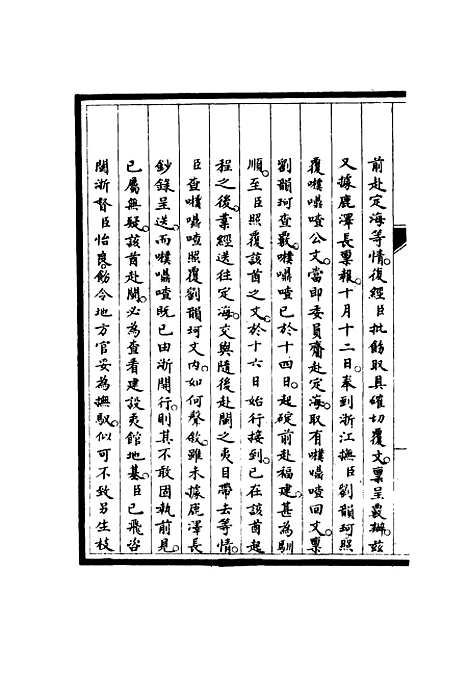 前赴定海等情復經臣批飭取具確切覆文稟呈覈辦茲
又據鹿澤長稟報十月十二日奉到浙江撫臣劉韻珂照
覆噗𠸄喳公文當即委員齎赴定海取有噗𠸄喳回文稟
劉韻珂查覈噗𠸄喳已於十四日起碇前赴福建甚為馴
順至臣照覆該酋之文於十六日始行接到已在該酋起
程之後業經送往定海交與隨後赴閩之夷目帶去等情
臣查噗𠸄喳照覆劉韻珂文內如何聲敘雖未據鹿澤長
鈔錄呈送而噗𠸄喳既已由浙閩行則其不敢固執前見
已屬無疑該酋赴閩必為查看建設夷館地基臣已飛咨
閩浙督臣怡良飭令地方官妥為撫馭似可不致另生枝